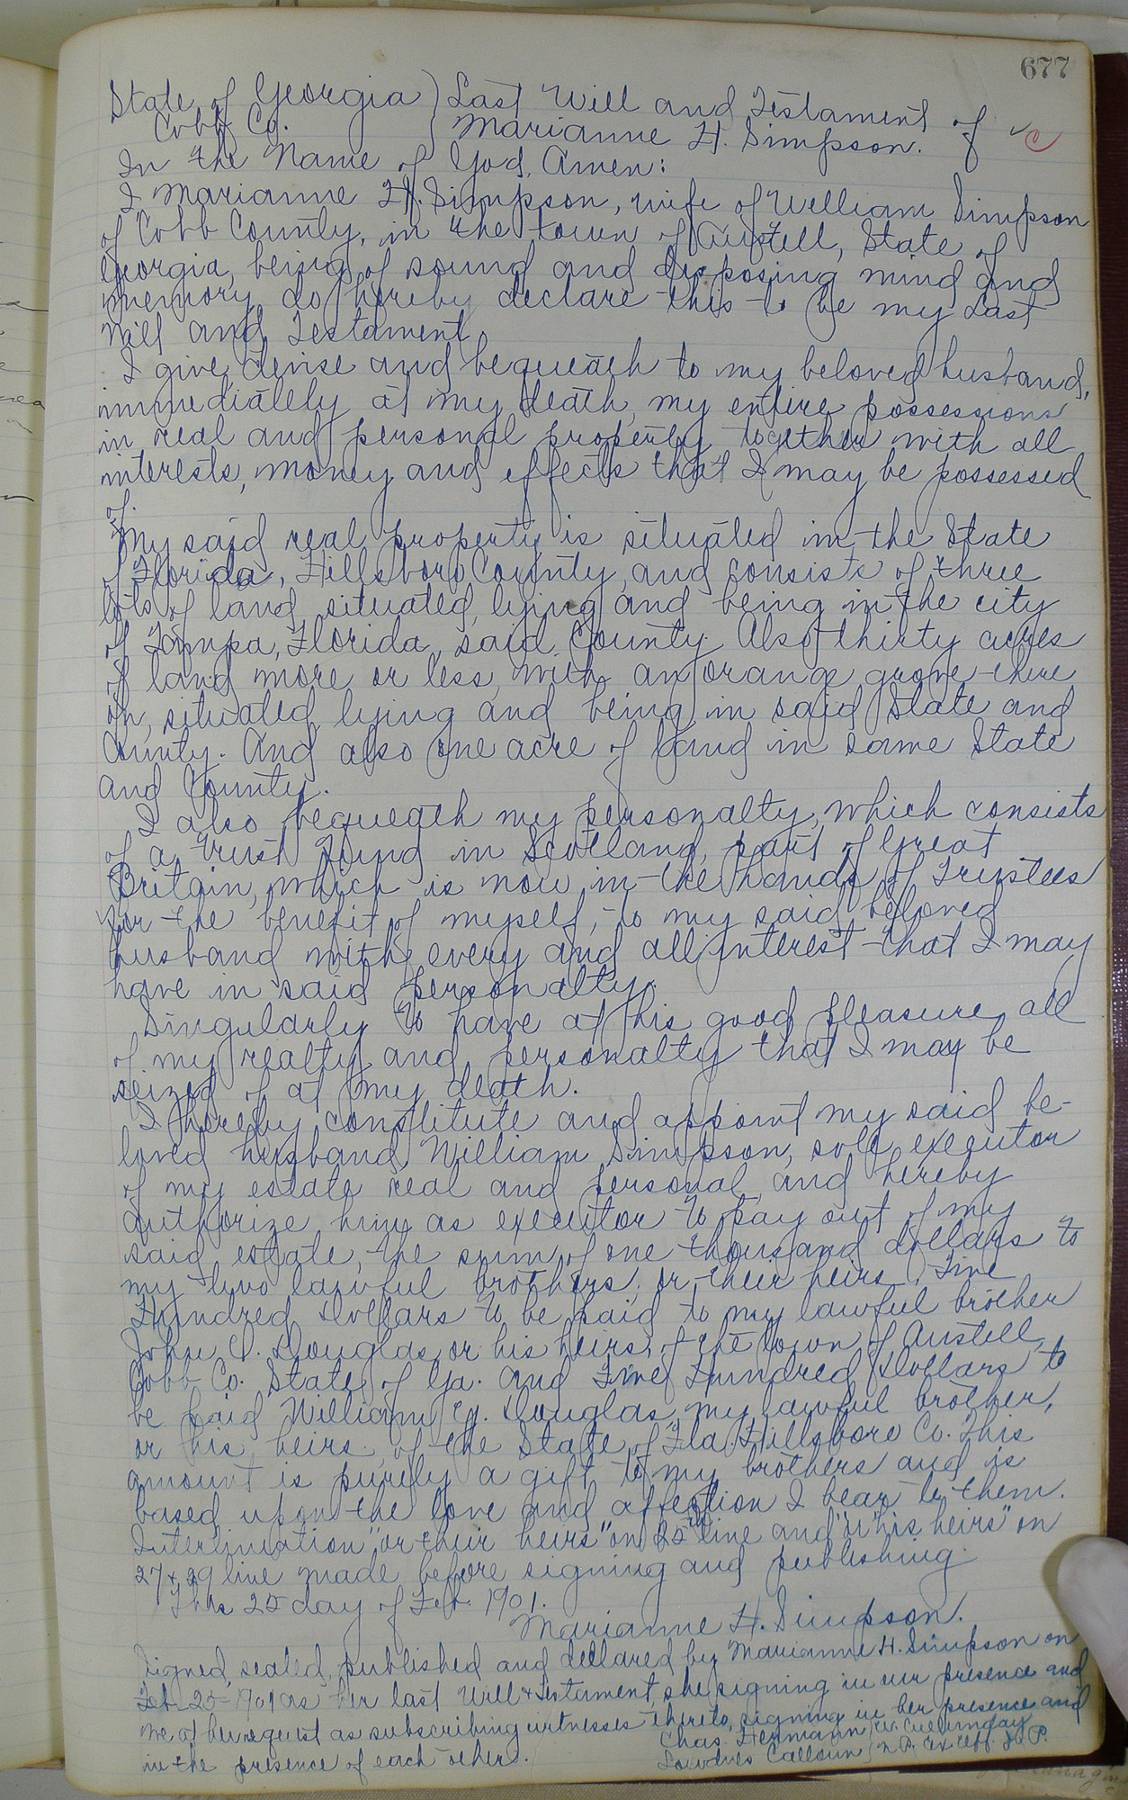 677
State of Georgia ) Last Will and Testament of
Cobb Co. ) Marianne H. Simpson.
In the Name of God, Amen:
I Marianne H. Simpson, wife of William Simpson
of Cobb County, in the town of Austell, State of
Georgia, being of sound and disposing mind and
memory, do hereby declare this to be my Last
Will and Testament.
I give, devise and bequeath to my beloved husband,
immediately at my death, my entire possessions
in real and personal property together with all
interests, money and effects that I may be possessed
of.
My said real property is situated in the State
of Florida, Hillsboro County, and consists of three
lots of land, situated, lying and being in the city
of Tampa, Florida, said County. Also thirty acres
of land more or less, with an orange grove there
on, situated, lying and being in said State and
County. And also one acre of land in same State
and County.
I also bequeath my personalty, which consists
of a trust fund in Scotland, part of Great
Britain, which is now in the hands of Trustees
for the benefit of myself, to my said beloved
husband with every and all interest that I may
have in said personalty.
Singularly to have at his good pleasure all
of my realty and personalty that I may be
seized of at my death.
I hereby constitute and appoint my said be-
loved husband, William Simpson, sole executor
of my estate real and personal, and hereby
authorize him as executor to pay out of my
said estate, the sum of one thousand dollars to
my two lawful brothers, or their heirs, Five
Hundred Dollars to be paid to my lawful brother
John Douglas or his heirs, of the town of Austell,
Cobb Co. State of Ga. and Five Hundred Dollars to
be paid William Douglas, my lawful brother,
or his heirs, of the State of Fla. Hillsboro Co. This
amount is purely a gift to my brothers and is
based upon the love and affection I bear to them.
Interlineation "or their heirs" on 25th line and "or his heirs" on
27 & 29 line made before signing and publishing.
This 25 day of Feb. 1901.
Marianne H. Simpson.
Signed, sealed, published and declared by Marianne H. Simpson on
Feb. 25-1901 as her last Will & Testament, she signing in our presence and
we at her request as subscribing witnesses thereto, signing in her presence and
in the presence of each other.
Chas. Hermann
Calhoun N.P. Ex Off. J.P.